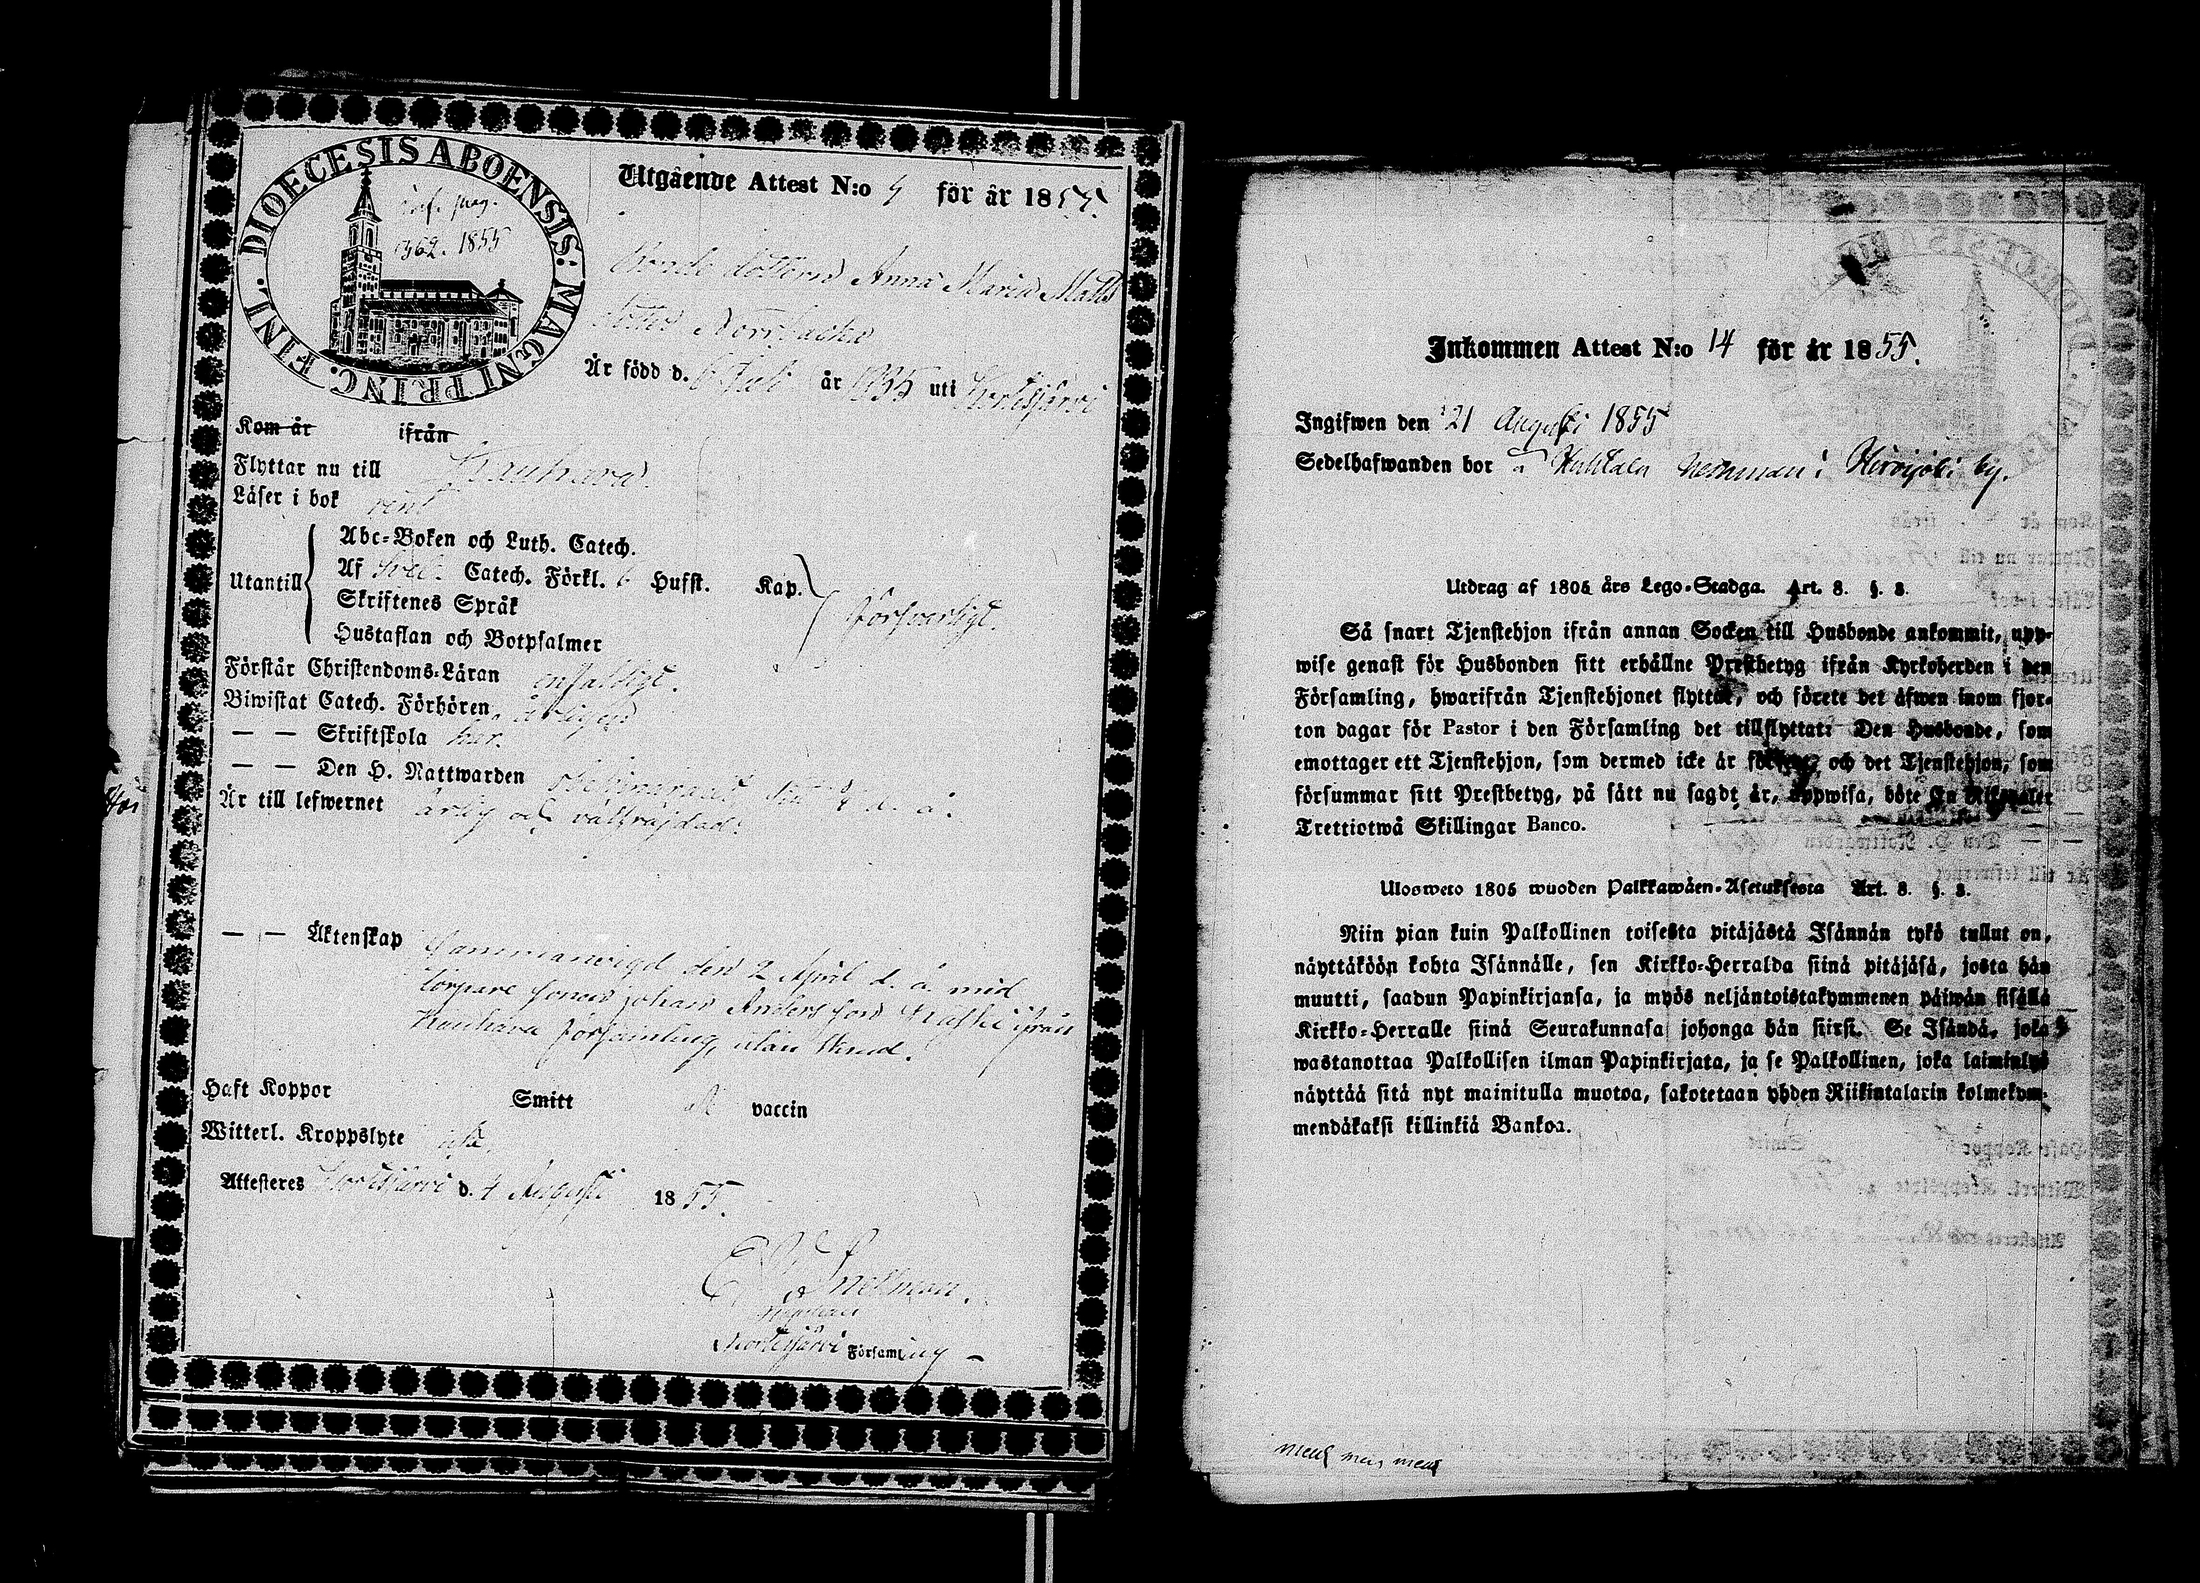 DIOECESIS ABOENSIS: MAGNI PRINC. FINL.
1855
Utgående Attest N:o för år 1855.
dottern Anna Maria Matts
dotter
Är född d. 6 Juli år 1835 uti Kortesjärvi
Kom år ifrån
Flyttar nu till Kauhava.
Läser i bok rent
Utantill
Abc-Boken och Luth. Catech.
Af Catech. Förkl. 6 Hufst. Kap.
Skriftenes Språk
försvarligt.
Hustaflan och Botpsalmer
Förstår Christendoms-Läran enfaldigt.
Biwistat Catech. Förhören årligen
— — Skriftskola här.
— — Den H. Nattwarden d. å.
Är till lefwernet ärlig och välfrejdad.
— — Äktenskap Sammanvigd den 2 April d. å. med
torpare sonen Johan Andersson ifrån
Kauhava församling, utan
Haft Koppor Smitt vaccin
Witterl. Kroppslyte
Attesteres Kortesjärvi d. 4 Augusti 1855.
Snellman.
Kortesjärvi Församling —
Inkommen Attest N:o 14 för år 1855.
Ingifwen den 21 Augusti 1855
Sedelhafwanden bor å Huhtala hemman i Hirvijoki by.
Utdrag af 1805 års Lego-Stadga. Art. 8. §. 8.
Så snart Tjenstehjon ifrån annan Socken till Husbonde ankommit, upp-
wise genast för Husbonden sitt erhållne Prestbetyg ifrån Kyrkoherden i den
Församling, hwarifrån Tjenstehjonet flyttat, och förete det äfwen inom fjor-
ton dagar för Pastor i den Församling det tillflyttat: Den Husbonde, som
emottager ett Tjenstehjon, som dermed icke är försedt, och det Tjenstehjon, som
försummar sitt Prestbetyg, på sätt nu sagdt är, uppwisa, böte En Riksdaler
Trettiotwå Skillingar Banco.
Ulosweto 1805 wuoden Palkkawäen-Asetuksesta Art. 8. §. 8.
Niin pian kuin Palkollinen toisesta pitäjästä Isännän tykö tullut on,
näyttäköön kohta Isännälle, sen Kirkko-Herralda siinä pitäjäsä, josta hän
muutti, saadun Papinkirjansa, ja myös neljäntoistakymmenen päiwän sisällä
Kirkko-Herralle siinä Seurakunnasa johonga hän siirsi. Se Isändä, joka
wastanottaa Palkollisen ilman Papinkirjata, ja se Palkollinen, joka laiminlyö
näyttää sitä nyt mainitulla muotoa, sakotetaan yhden Riikintalarin kolmekym-
mendäkaksi killinkiä Bankoa.